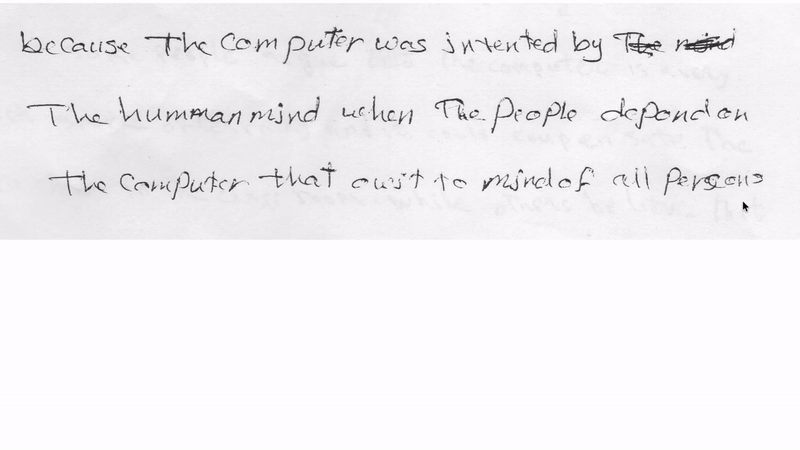 because The computer was intented by
The humman mind when The people depond on
the computer that owit to mind of all persons